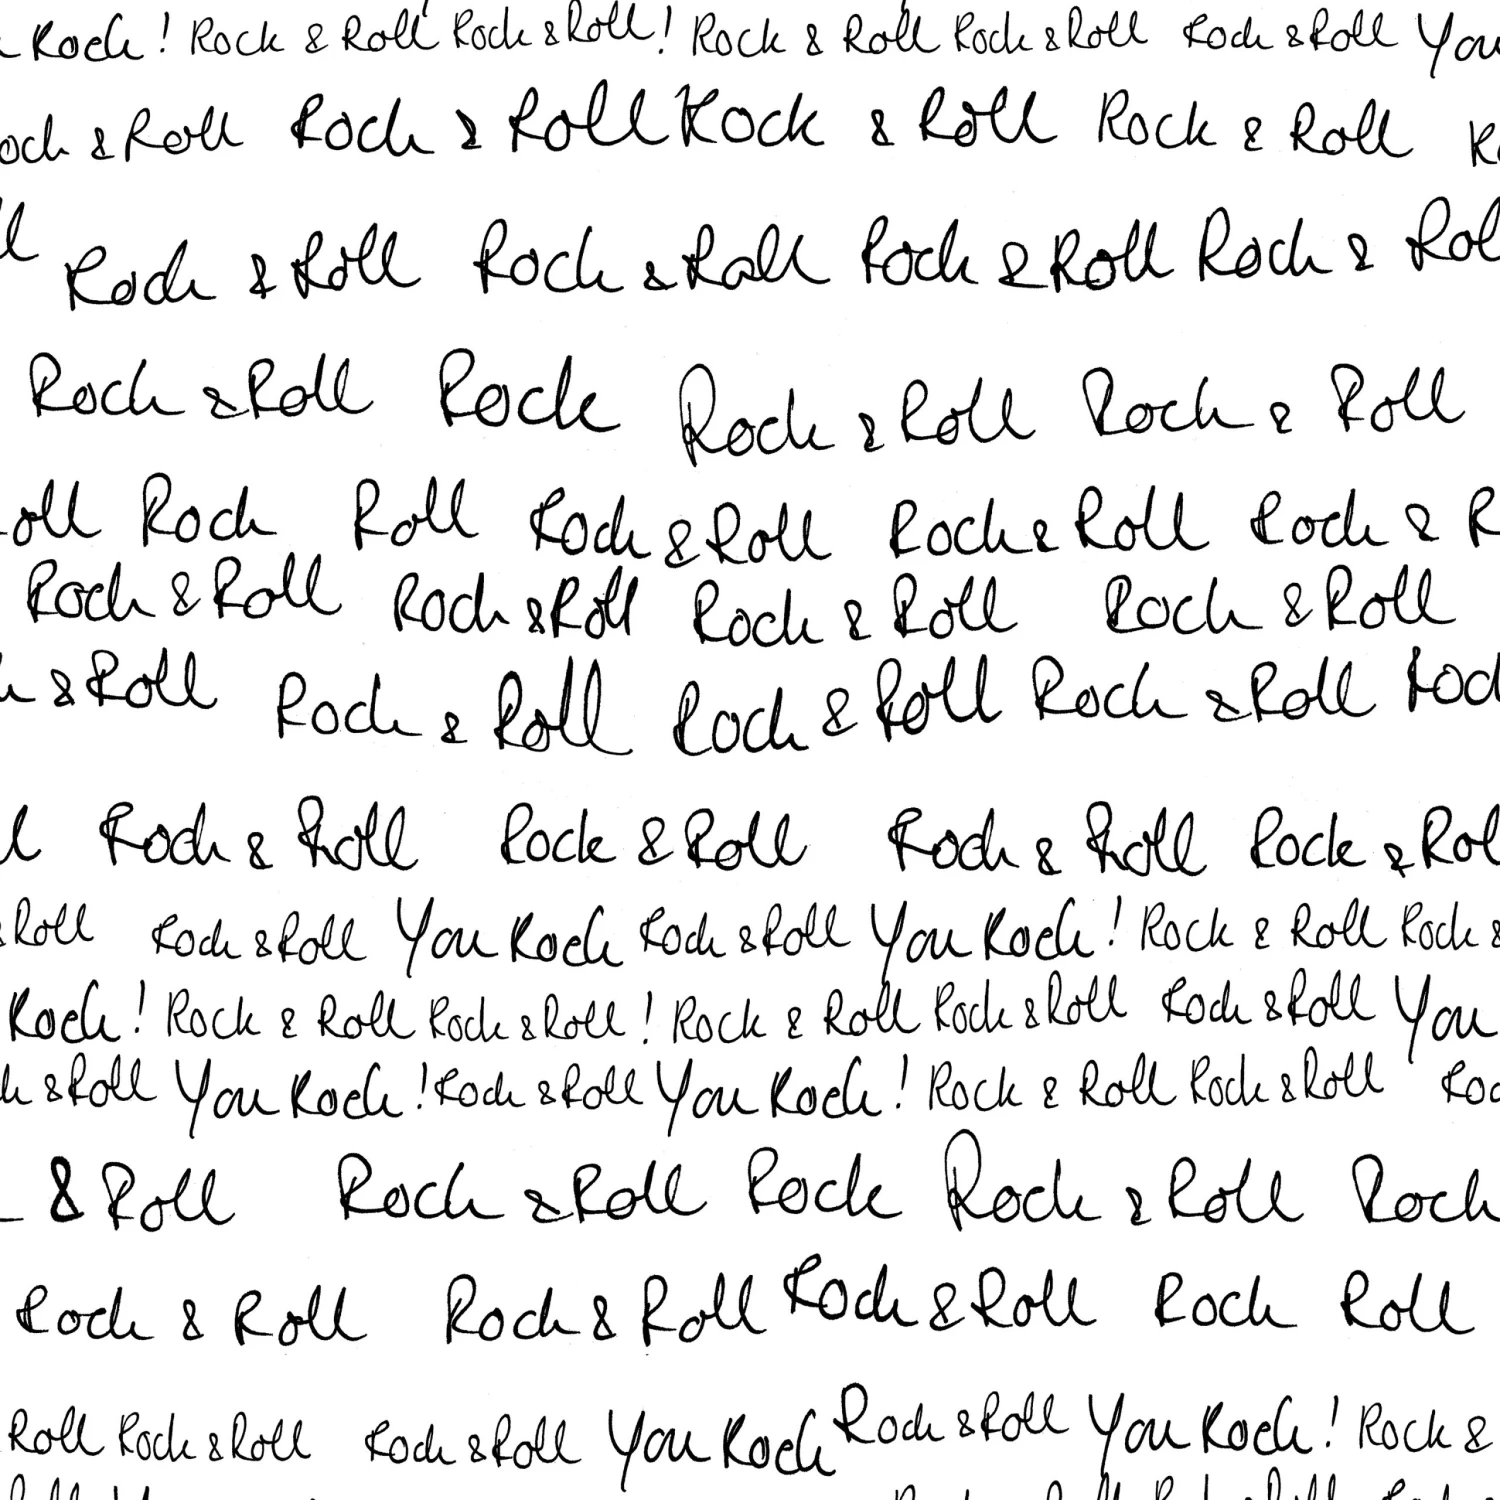 Rock! Rock & Roll Rock & Roll! Rock & Roll Rock & Roll Rock & Roll You
ock & Roll Rock & Roll Rock & Roll Rock & Roll
ll Rock & Roll Rock & Roll Rock & Roll Rock & Rol
Rock & Roll Rock Rock & Roll Rock & Roll
oll Rock Roll Rock & Roll Rock & Roll Rock & R
Rock & Roll Rock & Roll Rock & Roll Rock & Roll
& Roll Rock & Roll Rock & Roll Rock & Roll Roc
l Rock & Roll Rock & Roll Rock & Roll Rock & Rol
& Roll Rock & Roll You Rock Rock & Roll You Rock! Rock & Roll Rock &
Rock! Rock & Roll Rock & Roll! Rock & Roll Rock & Roll Rock & Roll You
k & Roll You Rock! Rock & Roll You Rock! Rock & Roll Rock & Roll Roc
& Roll Rock & Roll Rock Rock & Roll Rock
Rock & Roll Rock & Roll Rock & Roll Rock Roll
Roll Rock & Roll Rock & Roll You Rock Rock & Roll You Rock! Rock &